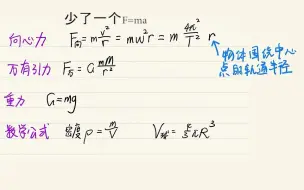 少了一个F=ma
向心力 F向=m v²/r=mω²r=m 4π²/T² r
物体围绕中心
点的轨道半径
万有引力 F万=G Mm/r²
重力 G=mg
数学公式 密度ρ=m/V V球=4/3πR³